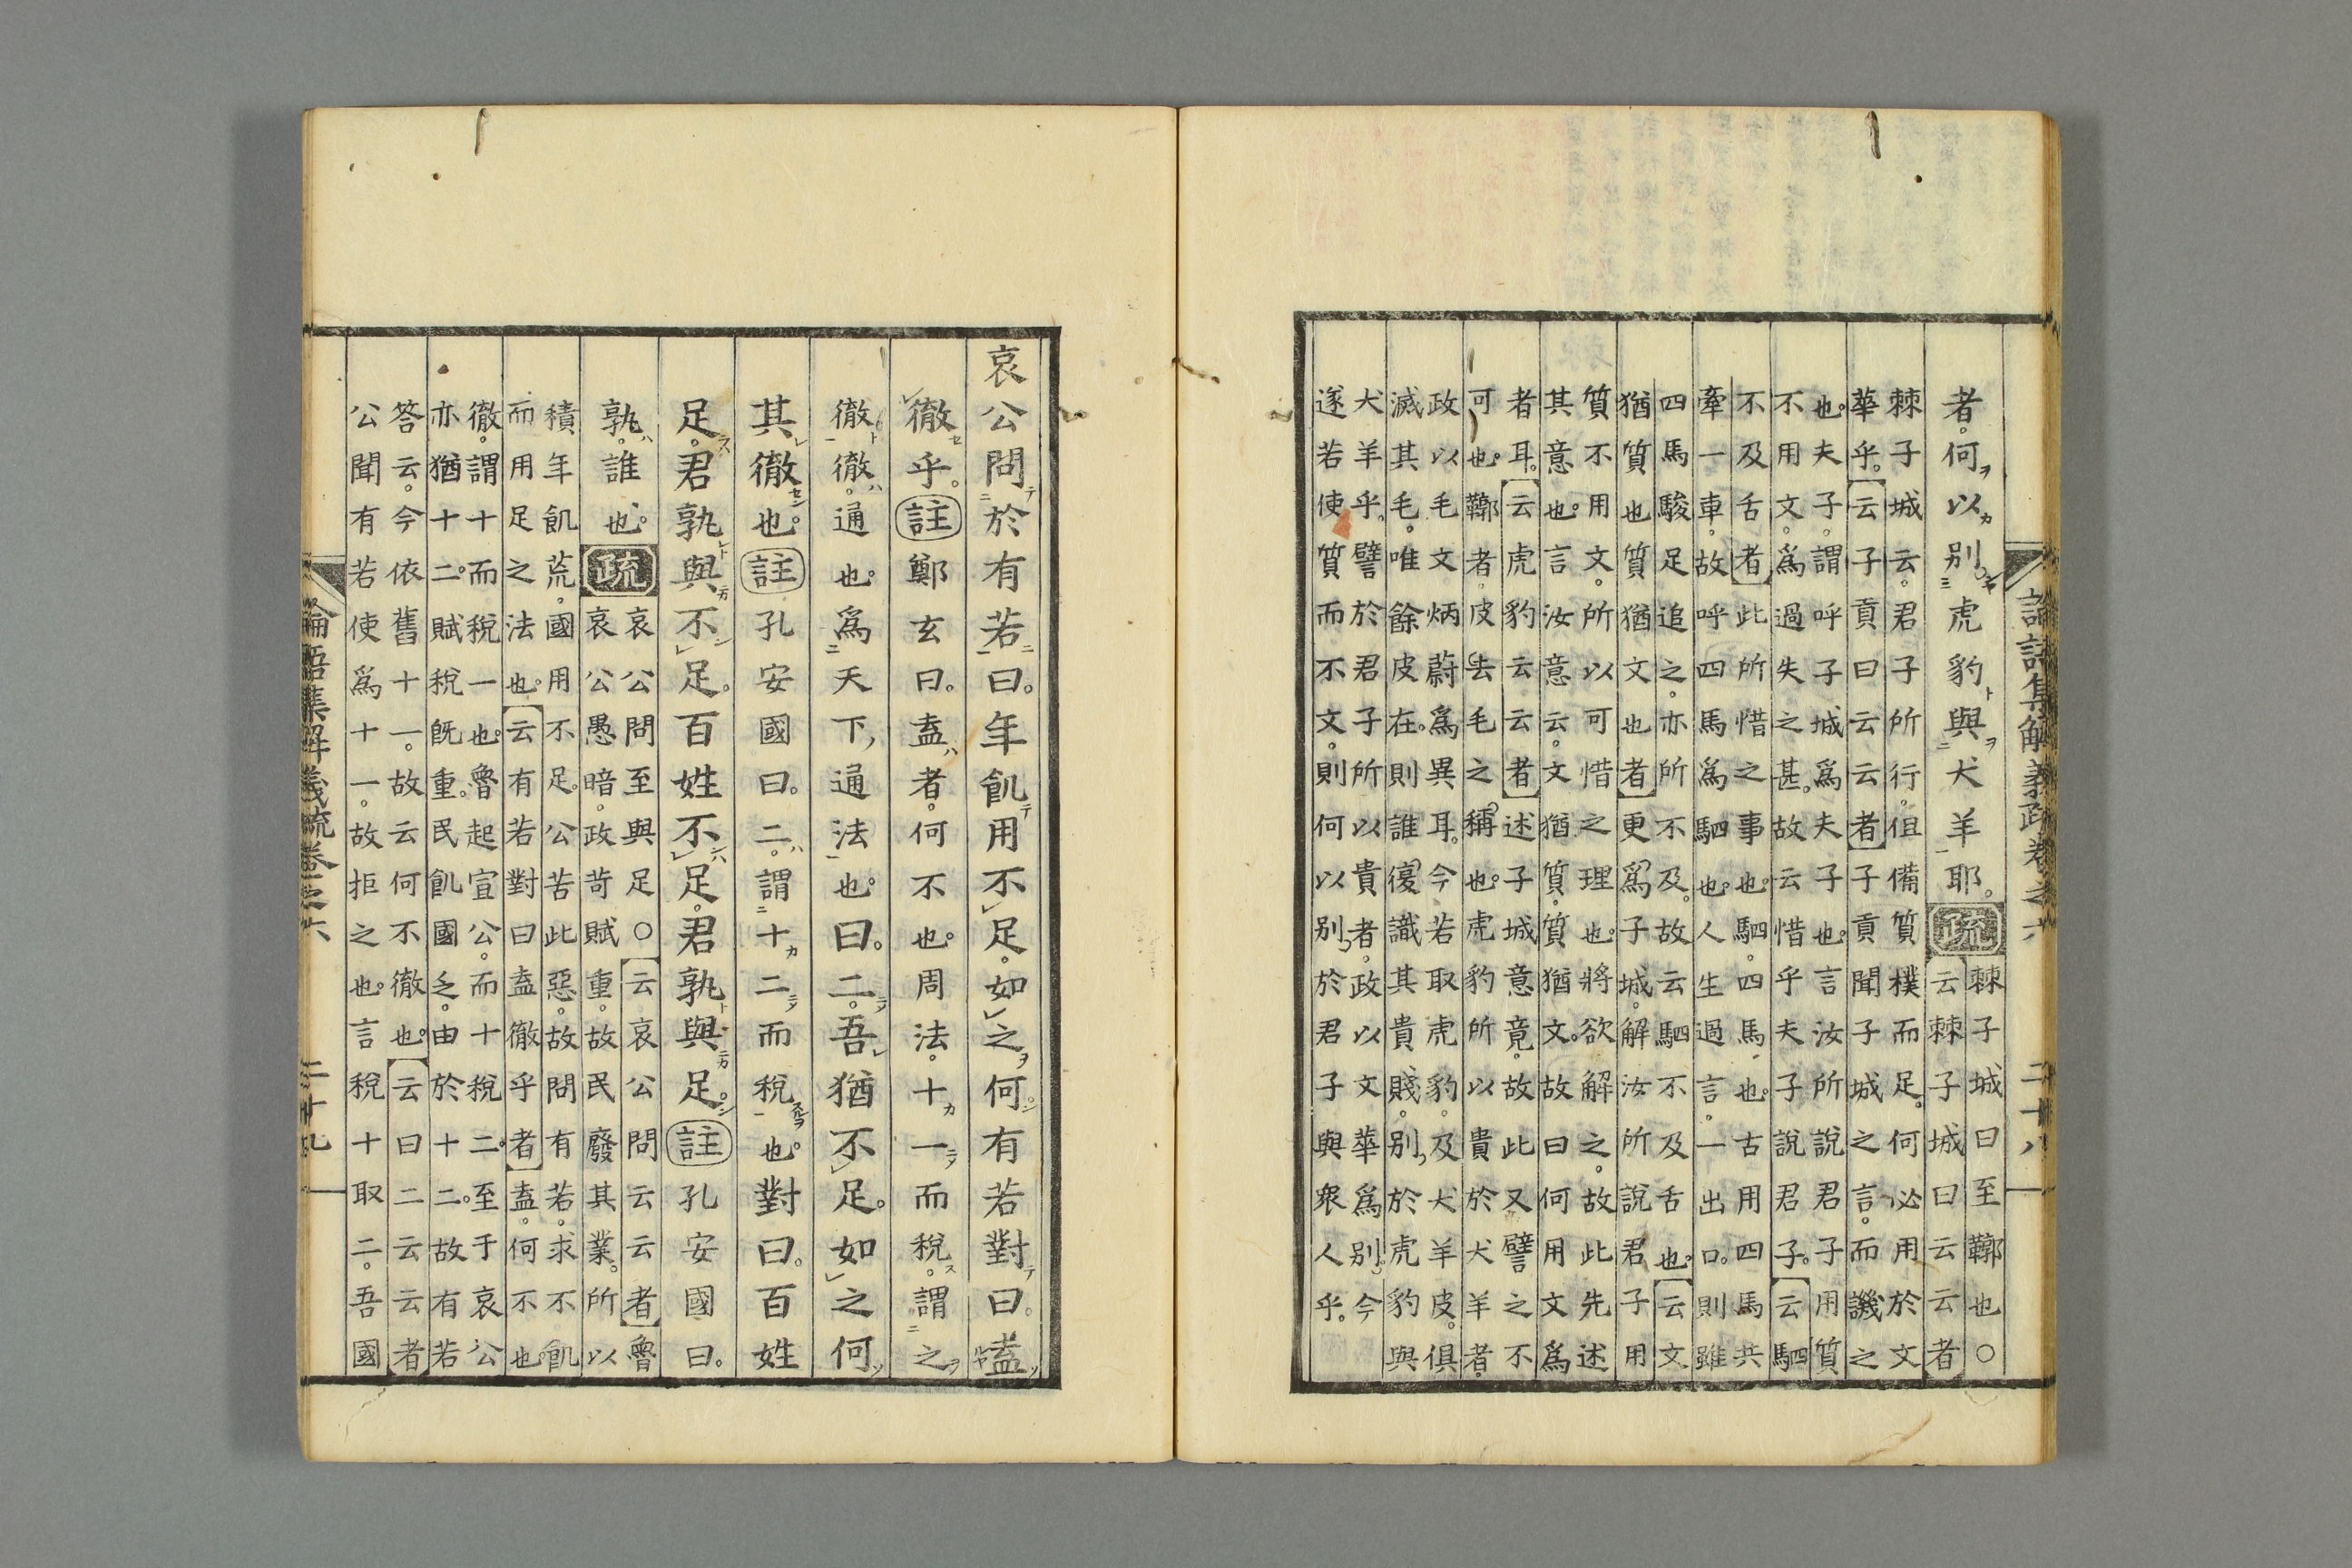 論語集解義疏卷之六 二十八
者。何以別虎豹與犬羊耶。疏
棘子城曰至鞹也○
云棘子城曰云云者
棘子城云。君子所行。但備質樸而足。何必用於文
華乎。云子貢曰云云者子貢聞子城之言。而譏之
也。夫子。謂呼子城爲夫子也。言汝所說君子用質
不用文。爲過失之甚。故云惜乎夫子說君子。云駟
不及舌者此所惜之事也。駟。四馬也。古用四馬共
牽一車。故呼四馬爲駟也。人生過言。一出口。則雖
四馬駿足追之。亦所不及。故云駟不及舌也。云文
猶質也質猶文也者更爲子城。解汝所說君子用
質不用文。所以可惜之理也。將欲解之。故此先述
其意也。言汝意云。文猶質。質猶文。故曰何用文爲
者耳。云虎豹云云者述子城意竟。故此又譬之不
可也。鞹者。皮去毛之稱也。虎豹所以貴於犬羊者。
政以毛文炳蔚爲異耳。今若取虎豹。及犬羊皮。俱
滅其毛。唯餘皮在。則誰復識其貴賤。別於虎豹與
犬羊乎。譬於君子所以貴者。政以文華爲別。今
遂若使質而不文。則何以別於君子與衆人乎。
哀公問於有若曰。年飢用不足。如之何有若對曰。盍
徹乎。註鄭玄曰。盍者。何不也。周法。十一而稅。謂之
徹徹。通也。爲天下通法也。曰。二。吾猶不足。如之何
其徹也。註孔安國曰。二。謂十二而稅也。對曰。百姓
足。君孰與不足。百姓不足。君孰與足。註孔安國曰。
孰。誰也。疏
哀公問至與足○云哀公問云云者魯
哀公愚暗。政苛賦重。故民廢其業。所以
積年飢荒。國用不足。公苦此惡。故問有若。求不飢
而用足之法也。云有若對曰盍徹乎者盍。何不也。
徹。謂十而稅一也。魯起宣公。而十稅二。至于哀公
亦猶十二。賦稅旣重。民飢國乏。由於十二。故有若
答云。今依舊十一。故云何不徹也。云曰二云云者
公聞有若使爲十一。故拒之也。言稅十取二。吾國
論語集解義疏卷之六 二十九